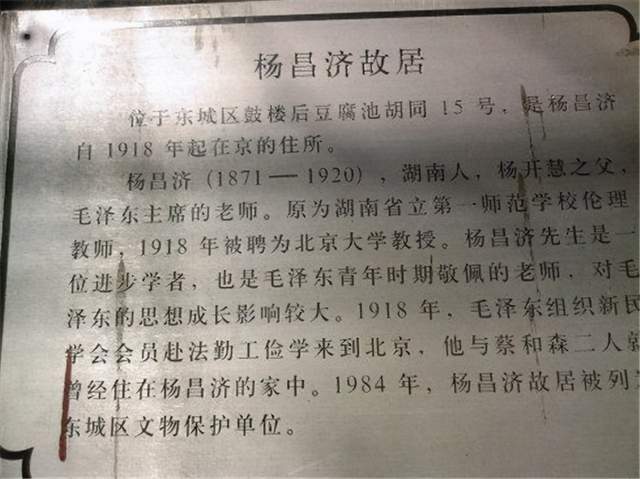 杨昌济故居
位于东城区鼓楼后豆腐池胡同 15 号，是杨昌济
自 1918 年起在京的住所。
杨昌济（1871 — 1920），湖南人，杨开慧之父，
毛泽东主席的老师。原为湖南省立第一师范学校伦理
教师，1918 年被聘为北京大学教授。杨昌济先生是一
位进步学者，也是毛泽东青年时期敬佩的老师，对毛
泽东的思想成长影响较大。1918 年，毛泽东组织新民
学会会员赴法勤工俭学来到北京，他与蔡和森二人就
曾经住在杨昌济的家中。1984 年，杨昌济故居被列
东城区文物保护单位。